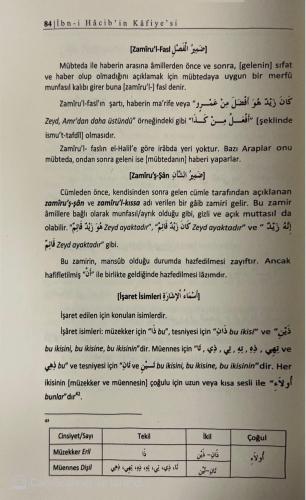 84|İbn-i Hâcib'in Kâfiye'si
[Zamîru'l-Fasl ضَمِيرُ الْفَصْلِ]
Mübteda ile haberin arasına âmillerden önce ve sonra, [gelenin] sıfat
ve haber olup olmadığını açıklamak için mübtedaya uygun bir merfû
munfasıl kalıbı girer buna [zamîru'l-] fasl denir.
Zamîru'l-fasl'ın şartı, haberin ma'rife veya "كَانَ زَيْدٌ هُوَ أَفْضَلَ مِنْ عَمْرٍو
Zeyd, Amr'dan daha üstündü" örneğindeki gibi "أَفْعَلُ مِنْ كَذَا" (şeklinde
ismu't-tafdîl) olmasıdır.
Zamîru'l- faslın el-Halîl'e göre irâbda yeri yoktur. Bazı Araplar onu
mübteda, ondan sonra geleni ise [mübtedanın] haberi yaparlar.
[Zamîru'ş-Şân ضَمِيرُ الشَّانِ]
Cümleden önce, kendisinden sonra gelen cümle tarafından açıklanan
zamîru'ş-şân ve zamîru'l-kıssa adı verilen bir gâib zamiri gelir. Bu zamir
âmillere bağlı olarak munfasıl/ayrık olduğu gibi, gizli ve açık muttasıl da
olabilir. "هُوَ زَيْدٌ قَائِمٌ Zeyd ayaktadır", "كَانَ زَيْدٌ قَائِمٌ Zeyd ayaktadır" ve "إِنَّهُ زَيْدٌ
قَائِمٌ Zeyd ayaktadır" gibi.
Bu zamirin, mansûb olduğu durumda hazfedilmesi zayıftır. Ancak
hafifletilmiş "أَنْ" ile birlikte geldiğinde hazfedilmesi lâzımdır.
[İşaret İsimleri أَسْمَاءُ الْإِشَارَةِ]
İşaret edilen için konulan isimlerdir.
İşâret isimleri: müzekker için "ذَا bu", tesniyesi için "ذَانِ bu ikisi" ve "ذَيْنِ
bu ikisini, bu ikisine, bu ikisinin"dir. Müennes için "تَا , ذِي , تِي , تِهِ , ذِهِ , تِهِي ve
ذِهِي bu" ve tesniyesi için "تَانِ ve تَيْنِ bu ikisini, bu ikisine, bu ikisinin"dir. Her
ikisinin [müzekker ve müennesin] çoğulu için uzun veya kısa sesli ile "أُولَاءِ
bunlar"dır
Cinsiyet/Sayı Tekil İkil Çoğul
Müzekker Eril ذَا ذَانِ - ذَيْنِ أُولَاءِ
Müennes Dişil تَا، ذِي، تِي، تِهِ، ذِهِ، تِهِي، ذِهِي تَانِ - تَيْنِ